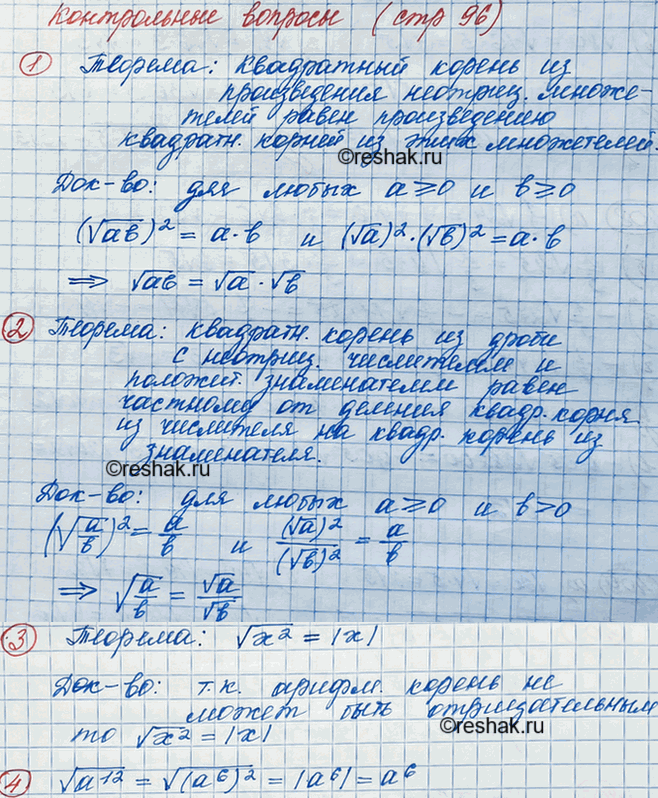 Контрольные вопросы (стр 96)
① Теорема: квадратный корень из
произведения неотриц. множе-
телей равен произведению
квадратн. корней из этих множетелей.
©reshak.ru
Док-во: для любых a⩾0 и b⩾0
(√ab)² = a·b и (√a)²·(√b)² = a·b
⇒ √ab = √a·√b
② Теорема: квадратн. корень из дроби
с неотриц. числителем и
положит. знаменателем равен
частному от деления квадр. корня
из числителя на квадр. корень из
знаменателя.
©reshak.ru
Док-во: для любых a⩾0 и b>0
(√(a/b))² = a/b и (√a)²/(√b)² = a/b
⇒ √(a/b) = √a/√b
③ Теорема: √x² = |x|
Док-во: т.к. арифм. корень не
может быть отрицательным
то √x² = |x|
©reshak.ru
④ √a¹² = √(a⁶)² = |a⁶| = a⁶